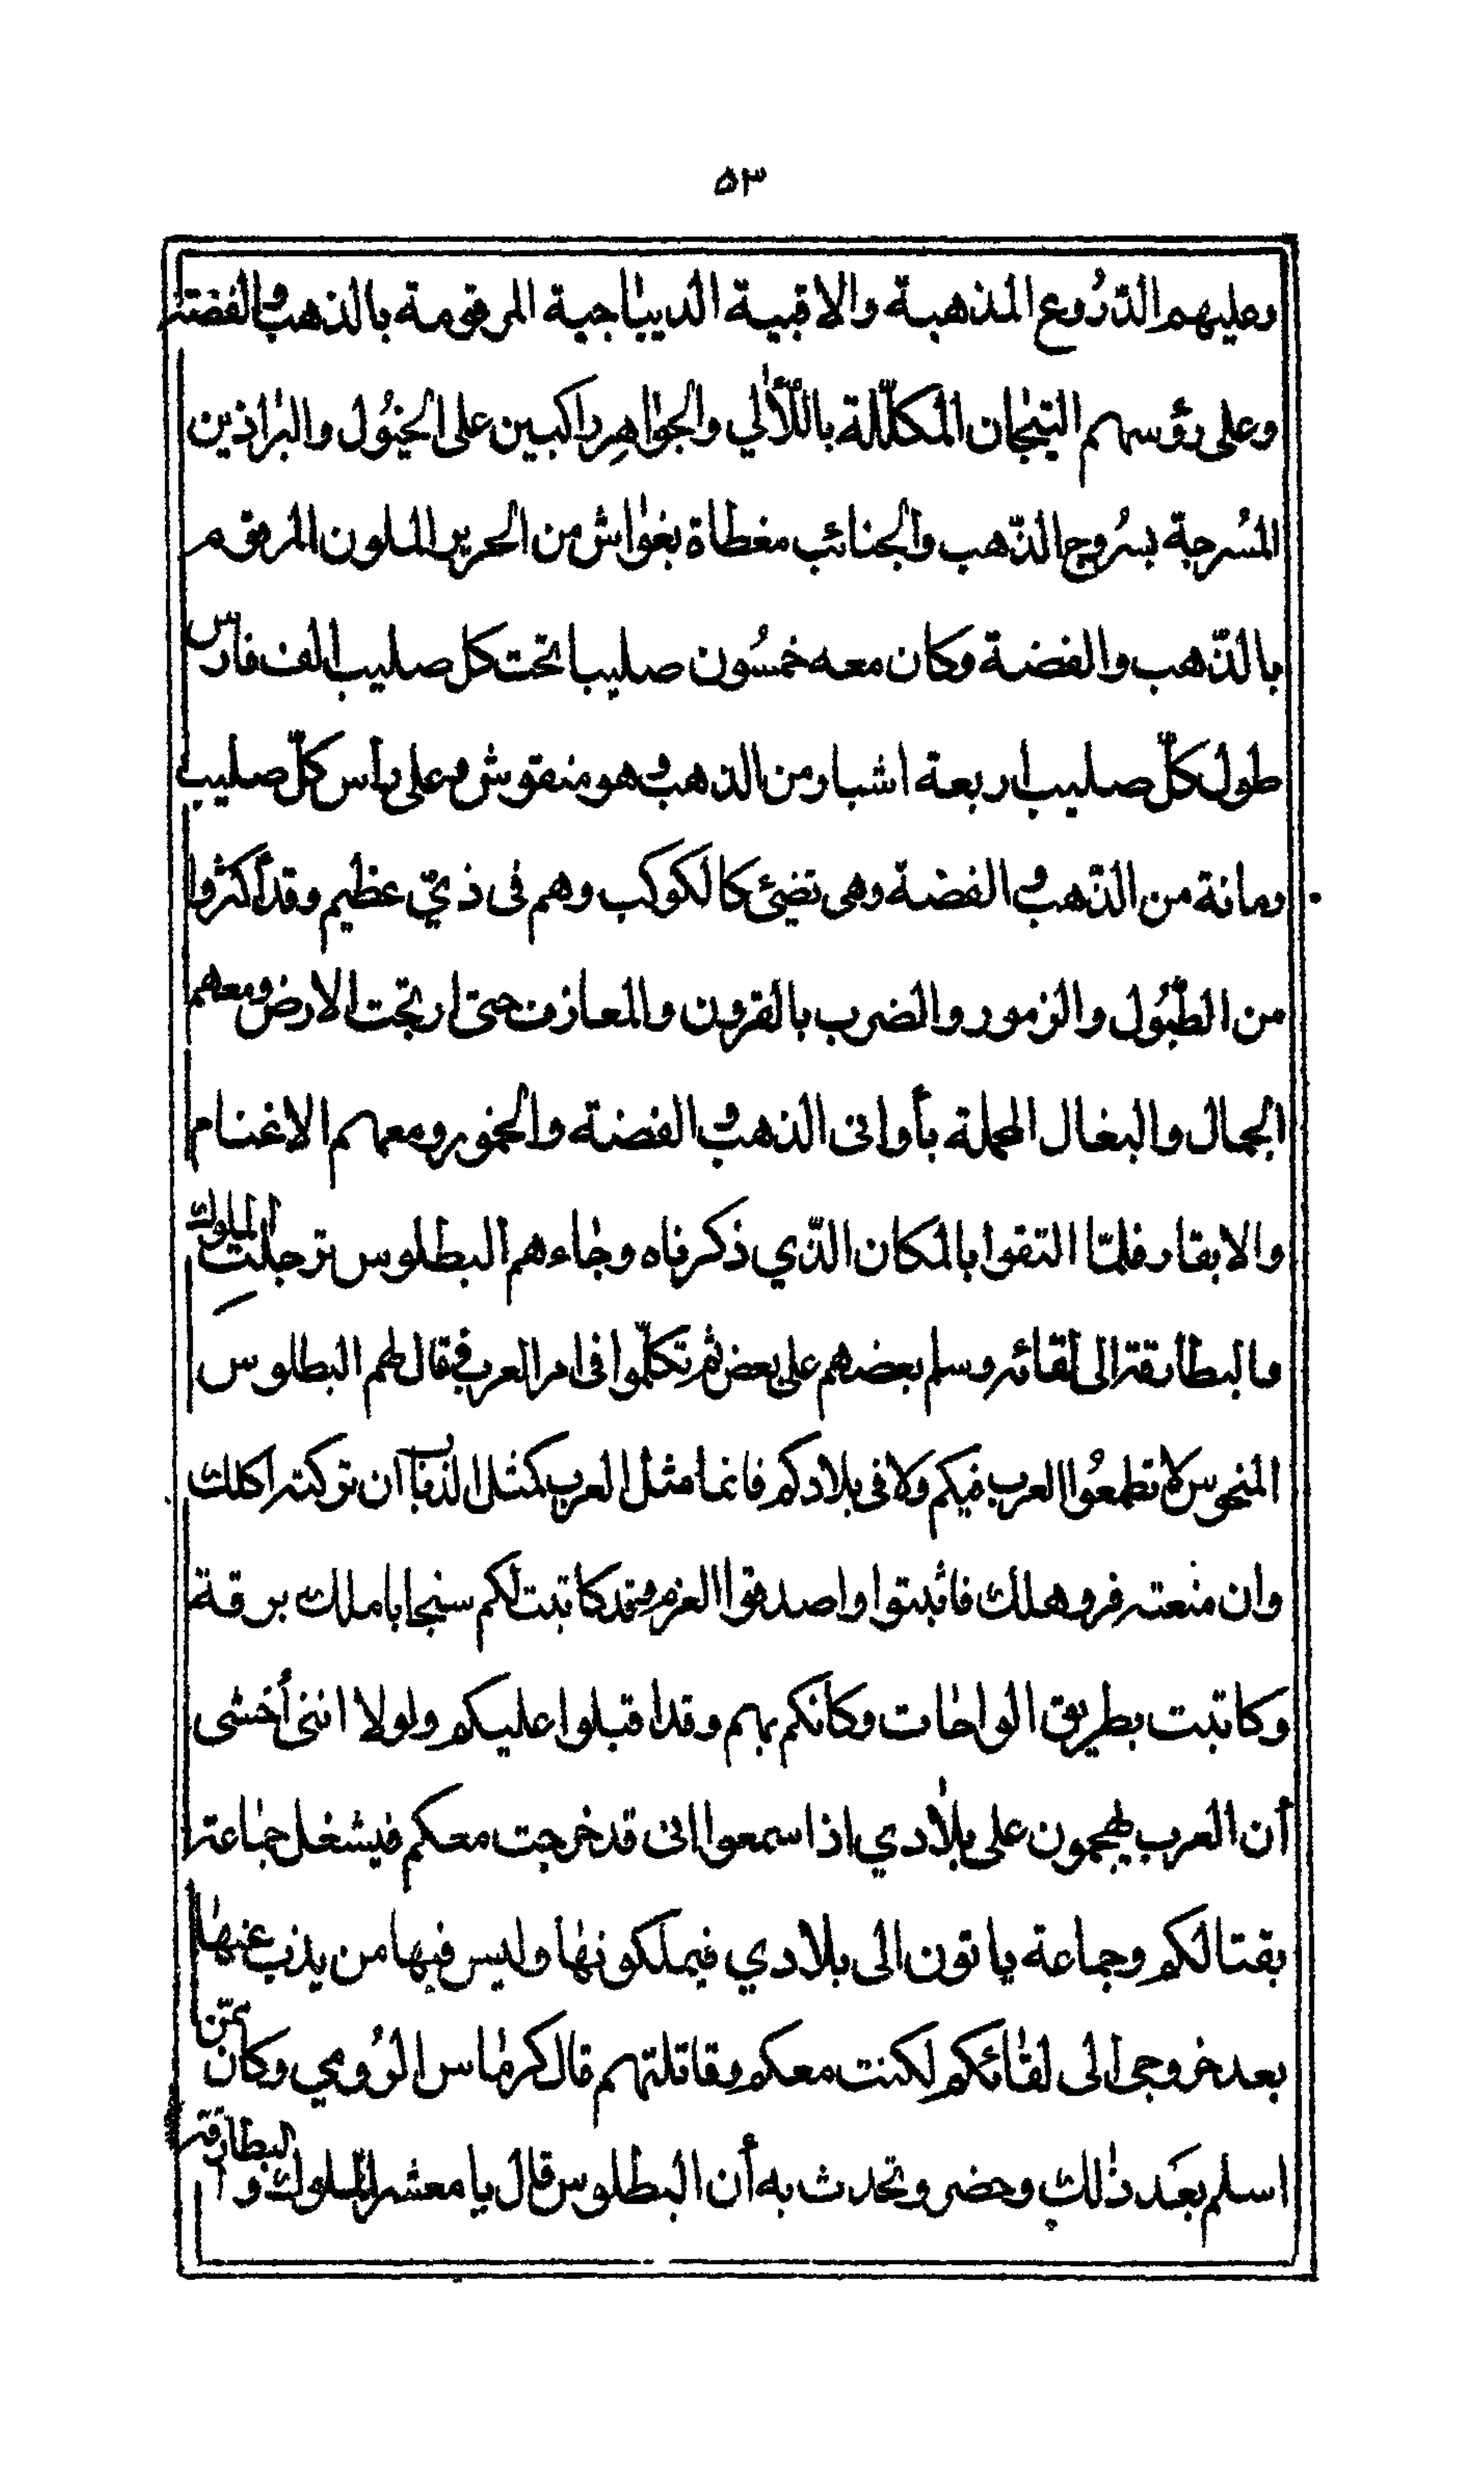 ٥٣
وعليهم الدّرُوع المذهبة والاقبية الديباجية المرقومة بالذهب والفضة
وعلى رؤسهم التيجان المكلّلة باللّألي والجواهِر راكبين على الخيُول والبراذين
المُسرجة بسُروج الذّهب والجنائب مغطاة بغواش من الحرير الملون المرقوم
بالذّهب والفضة وكان معه خمسُون صليبا تحت كل صليب الف فارس
طول كلّ صليب اربعة اشبار من الذهب وهو منقوش وعلى رأس كلّ صليب
رمانة من الذّهب والفضة وهى تضيئ كالكوكب وهم فى ذيّ عظيم وقد أكثروا
من الطّبُول والزمور والضرب بالقرون والمعازف حتى ارتجت الارض ومعهم
الجمال والبغال المحملة بأوانى الذهب والفضة والخمور ومعهم الاغنام
والابقار فلمّا التقوا بالمكان الذّي ذكرناه وجاءهم البطلوس ترجلتِ الملوك
والبطارقة الى لقائه وسلم بعضهم على بعض ثم تكلّموا فى امر العرب فقال لهم البطلوس
المنحوس لا تطمعُوا العرب فيكم ولا فى بلادكم فانما مثل العرب كمثل الذباب ان تركته اكلك
وان منعته فر وهلك فاثبتوا واصدقوا العزم وقد كاتبت لكم سنجابا ملك برقة
وكاتبت بطريق الواحات وكانكم بهم وقد اقبلوا عليكم ولولا اننى أخشى
أن العرب يهجمون على بلادي اذا سمعوا انى قد خرجت معكم فيشغل جماعة
بقتالكم وجماعة ياتون الى بلادي فيملكونها وليس فيها من يذب عنها
بعد خروجى الى لقائكم لكنت معكم وقاتلتهم قال كرماس الرُومي وكان ممّن
اسلم بعَد ذلك وحضر وتحدث به أن البطلوس قال يا معشر الملوك والبطارقة